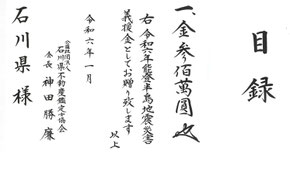 目録
一、金参佰萬圓也
右 令和六年能登半島地震災害
義援金としてお贈り致します
以上
令和六年一月
公益社団法人
石川県不動産鑑定士協会
会長 神田勝廉
石川県様